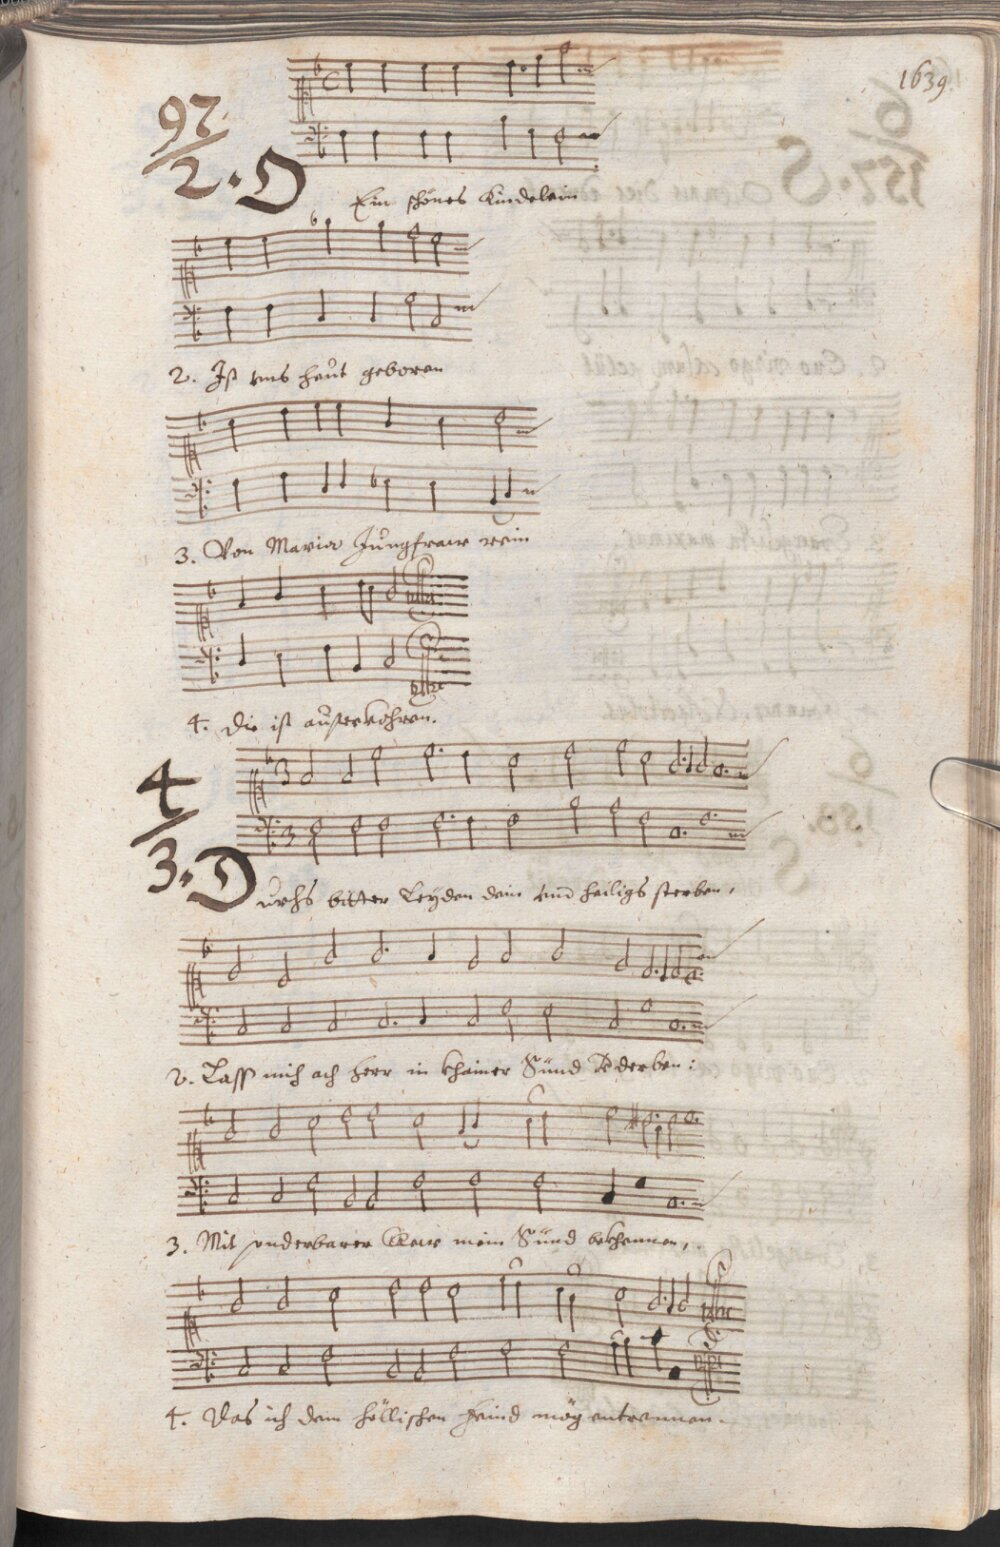 1639
97/2. O
Ein schönes Kindelein
2. Ist uns heut geboren
3. Von Maria Jungfraw rein
4. die ist außerkohren.
4/3. Durchs bitter Leyden dein und heiligs sterben,
2. Lass mich ach Herr in khainer Sünd
3. Mit sonderbarer mein Sünd bekhennen,
4. Das ich dem höllischen Feind mög entrennen.